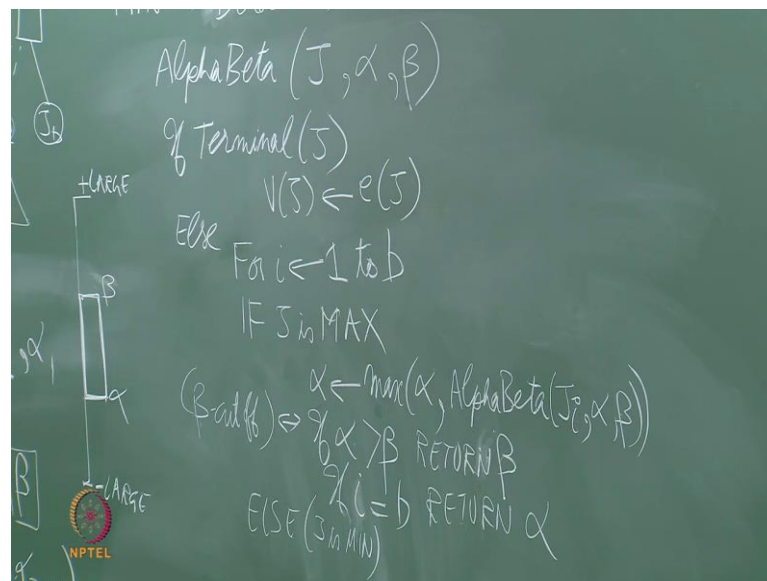 AlphaBeta (J, α, β)
If Terminal (J)
V(J) ← e(J)
Else
For i ← 1 to b
IF J is MAX
α ← max(α, AlphaBeta(Ji, α, β))
(β-cutoff) ⇔ If α > β RETURN β
If i = b RETURN α
ELSE (J is MIN)
Jb
+LARGE
β
α
-LARGE
, α,
β
NPTEL